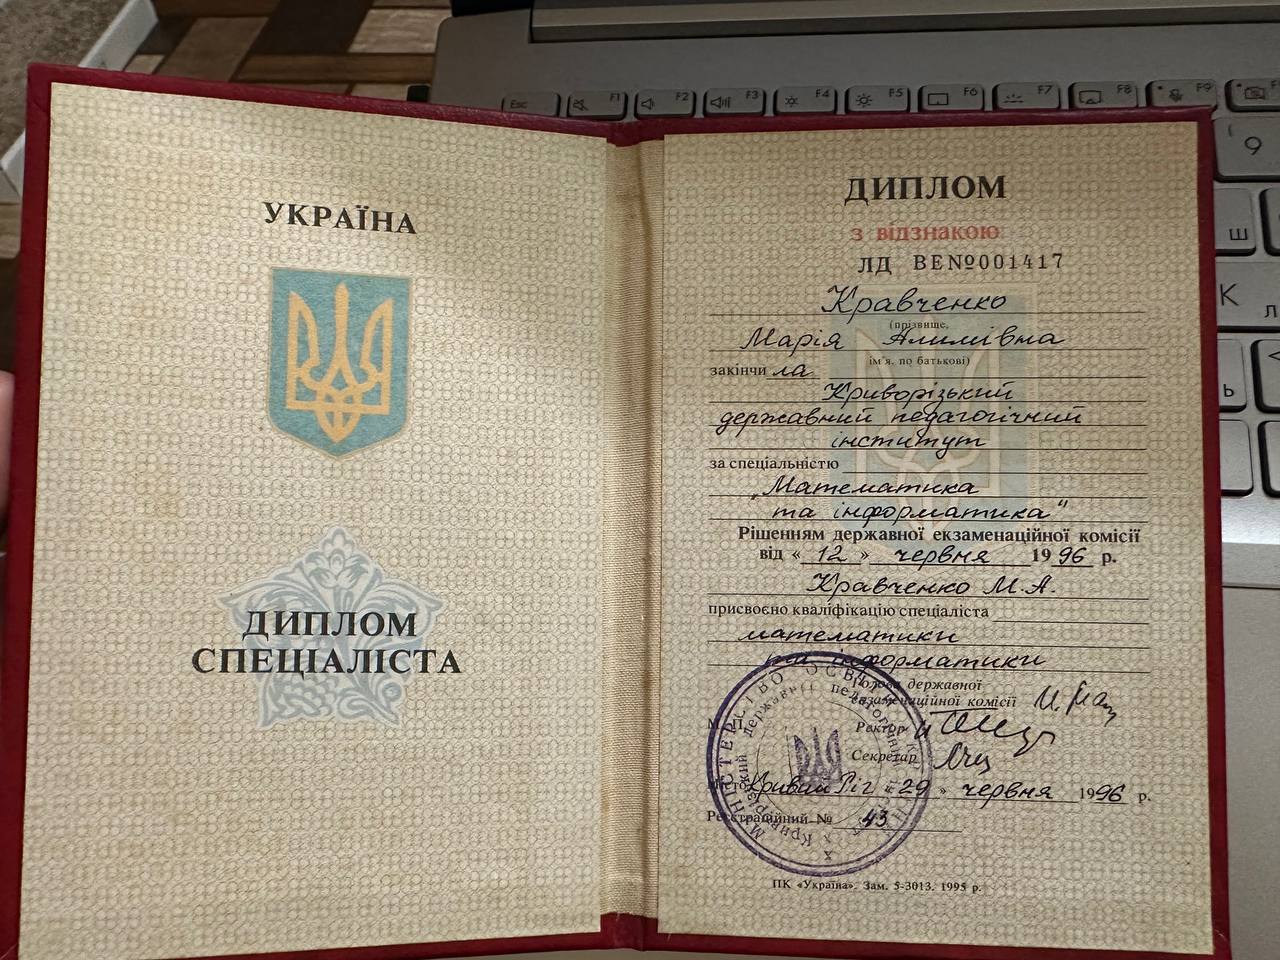 УКРАЇНА
ДИПЛОМ
СПЕЦІАЛІСТА
ДИПЛОМ
з відзнакою
ЛД ВЕ№001417
Кравченко
(прізвище,
Марія Алимівна
ім'я, по батькові)
закінчила
Криворізький
державний педагогічний
інститут
за спеціальністю
„Математика
та інформатика"
Рішенням державної екзаменаційної комісії
від «12» червня 1996 р.
Кравченко М.А.
присвоєно кваліфікацію спеціаліста
математики
та інформатики
Голова державної
екзаменаційної комісії
М. П.
Ректор
Секретар
Місто Кривий Ріг «29» червня 1996 р.
Реєстраційний № 43
МІНІСТЕРСТВО ОСВІТИ
Криворізький державний педагогічний
ПК «Україна». Зам. 5-3013. 1995 р.
Esc F1 F2 F3 F4 F5 F6 F7 F8 F9
( 9
Ш
К Л
Ь